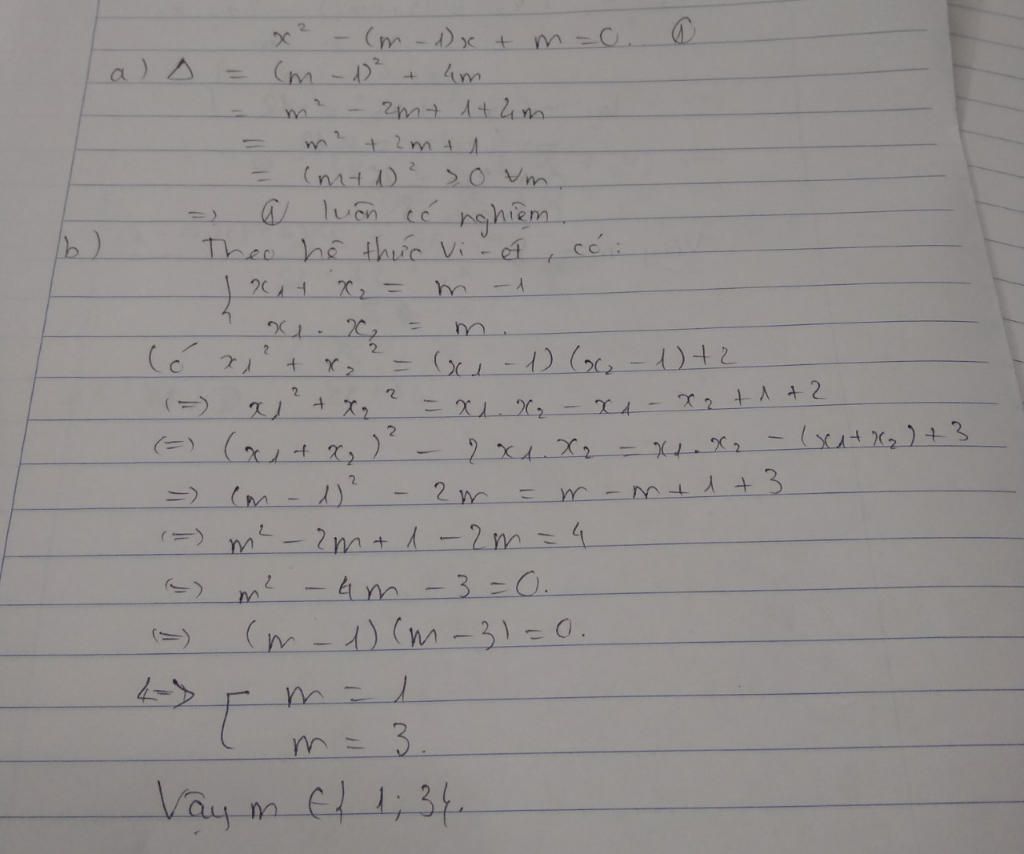 x² - (m - 1)x + m = 0. ①
a) Δ = (m - 1)² + 4m
= m² - 2m + 1 + 4m
= m² + 2m + 1
= (m+1)² ≥ 0 ∀m.
=> ① luôn có nghiệm.
b) Theo hệ thức Vi-ét, có:
{ x1 + x2 = m - 1
x1 . x2 = m.
Có x1² + x2² = (x1 - 1)(x2 - 1) + 2
(=) x1² + x2² = x1.x2 - x1 - x2 + 1 + 2
(=) (x1 + x2)² - 2x1.x2 = x1.x2 - (x1+x2) + 3
=) (m - 1)² - 2m = m - m + 1 + 3
(=) m² - 2m + 1 - 2m = 4
(=) m² - 4m - 3 = 0.
(=) (m - 1)(m - 3) = 0.
<=> [ m = 1
m = 3.
Vậy m ∈ { 1; 3}.